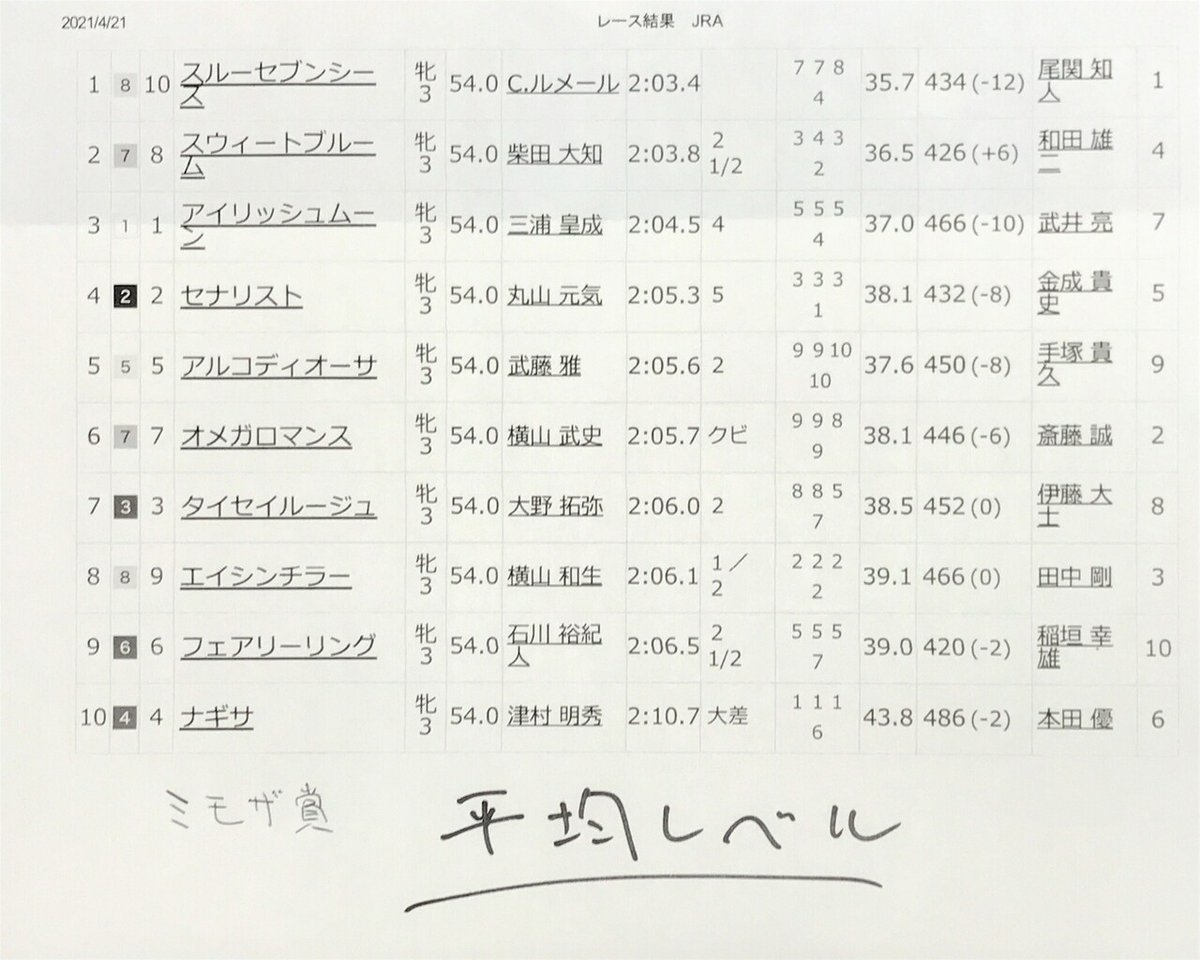 2021/4/21 レース結果 JRA
1 8 10 スルーセブンシース 牝3 54.0 C.ルメール 2:03.4 7 7 8 4 35.7 434 (-12) 尾関 知人 1
2 7 8 スウィートブルーム 牝3 54.0 柴田 大知 2:03.8 2 1/2 3 4 3 2 36.5 426 (+6) 和田 雄二 4
3 1 1 アイリッシュムーン 牝3 54.0 三浦 皇成 2:04.5 4 5 5 5 4 37.0 466 (-10) 武井 亮 7
4 2 2 セナリスト 牝3 54.0 丸山 元気 2:05.3 5 3 3 3 1 38.1 432 (-8) 金成 貴史 5
5 5 5 アルコディオーサ 牝3 54.0 武藤 雅 2:05.6 2 9 9 10 10 37.6 450 (-8) 手塚 貴久 9
6 7 7 オメガロマンス 牝3 54.0 横山 武史 2:05.7 クビ 9 9 8 9 38.1 446 (-6) 斎藤 誠 2
7 3 3 タイセイルージュ 牝3 54.0 大野 拓弥 2:06.0 2 8 8 5 7 38.5 452 (0) 伊藤 大士 8
8 8 9 エイシンチラー 牝3 54.0 横山 和生 2:06.1 1／2 2 2 2 2 39.1 466 (0) 田中 剛 3
9 6 6 フェアリーリング 牝3 54.0 石川 裕紀人 2:06.5 2 1/2 5 5 5 7 39.0 420 (-2) 稲垣 幸雄 10
10 4 4 ナギサ 牝3 54.0 津村 明秀 2:10.7 大差 1 1 1 6 43.8 486 (-2) 本田 優 6
ミモザ賞 平均レベル